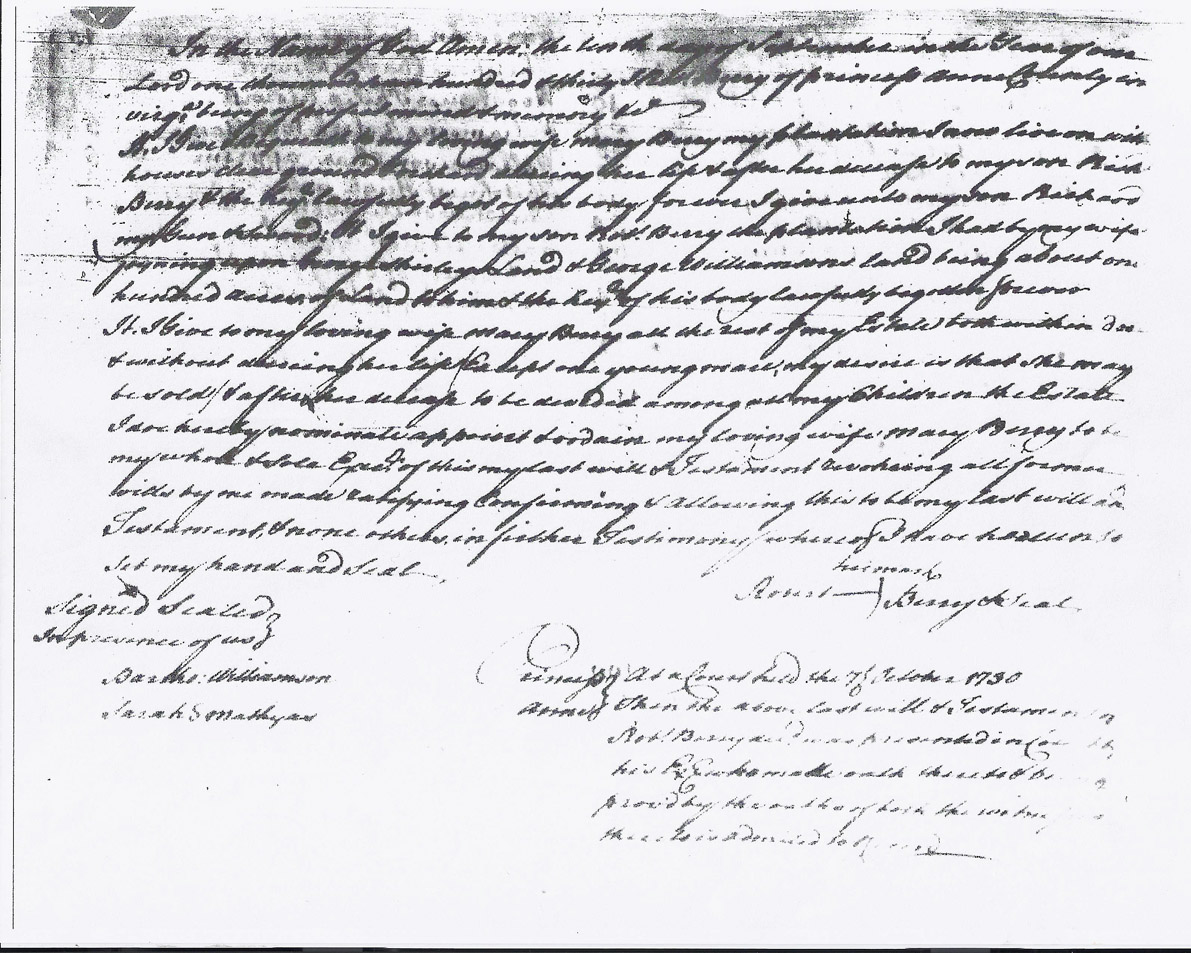 In the Name of God Amen. the tenth day of September in the Year of our
Lord one thousand seven hundred & thirty I Robt. Berry of princess Anne County in
virga. being of perfect mind & memory &c
It. I Give & bequeath to my loving wife Mary Berry my plantation I now live on with
houses clear ground orchard during her life & after her decease to my son Rich
Berry & the heyrs lawfully begot of his body for ever I give unto my son Richard
my Gun & Sword: It I give to my son Robt. Berry the plantation I had by my wife
joyning upon Shirleys Land & George Williamsons land being about one
hundred acres of land to him & the heyrs of his body lawfully begotten forever
It. I Give to my loving wife Mary Berry all the rest of my Estate both within dor
& without during her life (Except one young mare, my desire is that she may
be sold) & after her decease to be devided among all my Children the Estate
I doe hereby nominate appoint & ordain my loving wife Mary Berry to be
my whole & Sole Exectr. of this my last will & Testament revokeing all former
wills by me made ratifying Confirming & allowing this to be my last will an
Testament, & none others, in further Testimony whereof I have hereunto
set my hand and Seal
his mark
Robert ) Berry & Seal
Signed Sealed
In presence of us
Bartho: Williamson
Sarah Mathyas
Princess At a Court held the 7th. October 1730
Anne Then the above last will & Testament of
Robt. Berry decd. was presented in Co
his Exe who made oath thereto & be
provd by the oaths of both the witnesses
thereto is admitted to Record